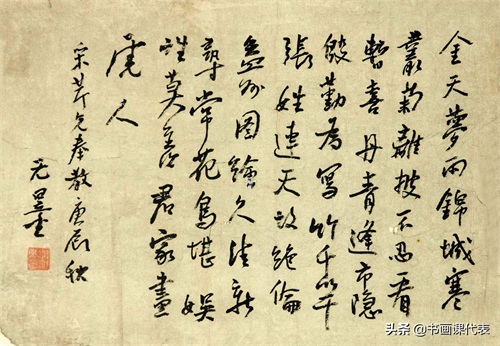 金天夢雨錦城寒
叢菊離披不忍看
暫喜丹青逢市隱
殷勤為寫竹千竿
張姓天絕倫
益州圖繪久清新
尋常花鳥堪娛
性莫羨君家畫
虎人
兄奉教庚辰秋
头条 @书画课代表